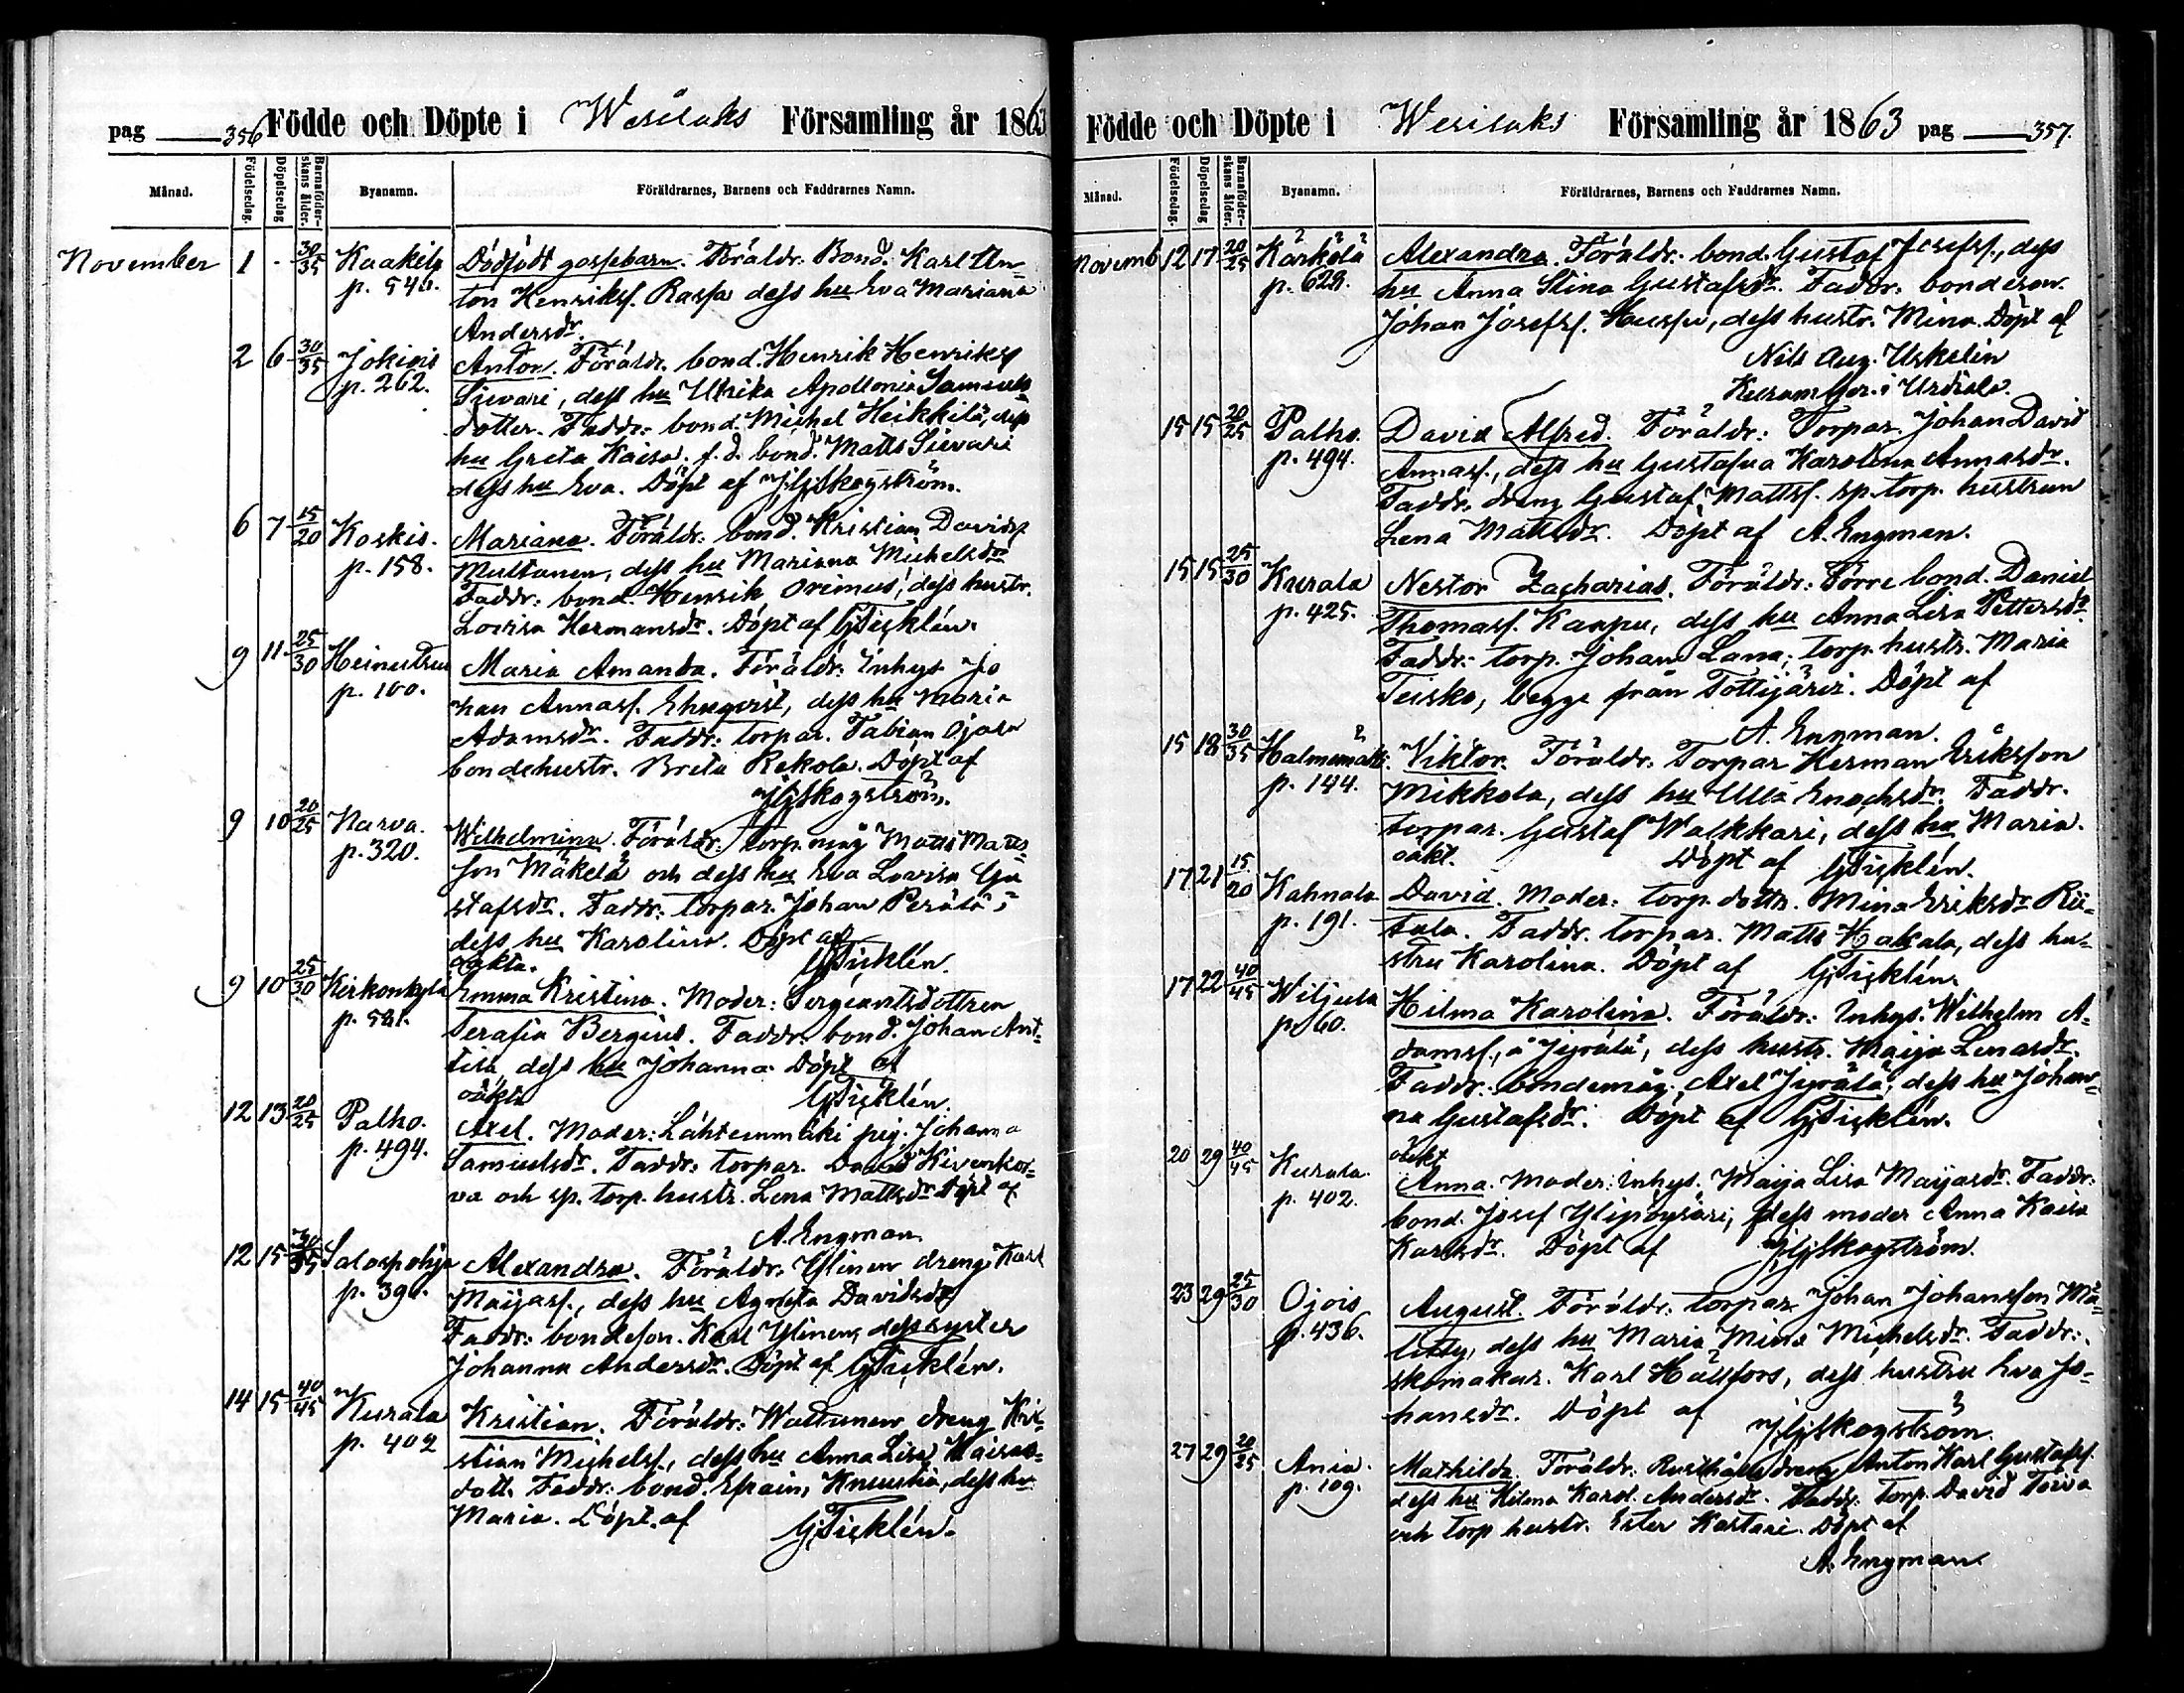 pag 356 Födde och Döpte i Wesilaks Församling år 1863
Månad. Födelsedag. Döpelsedag Barnaföderskans ålder. Byanamn. Föräldrarnes, Barnens och Faddrarnes Namn.
November 1 - 30/35 Kaakila Dödfödt gossebarn. Föräldr: Bond. Karl An-
p. 540. ton Henrikss. Rassa dess hu Eva Mariana
Andersdr.
2 6 30/35 Jokiois Anton. Föräldr. bond. Henrik Henrikss
p. 262. Sievari, dess hu Ulrika Apollonia Samuels-
dotter. Faddr: bond. Michel Heikkilä, dess
hu Greta Kaisa. f. d. bond. Matts Sievari
dess hu Eva. Döpt af Skogström.
6 7 15/20 Koskis. Mariana. Föräldr: bond. Kristian Davidss
p. 158. Multanen, dess hu Mariana Michelsdr
Faddr: bond. Henrik Orimus, dess hustr.
Lovisa Hermansdr. Döpt af G Ticklén.
9 11 25/30 Heinustrus Maria Amanda. Föräldr: Inhys Jo
p. 100. han Annass. Ehnqvist, dess hu Maria
Adamsdr. Faddr: torpar. Fabian Ojasa
bondehustr. Brita Rekola. Döpt af
Skogström.
9 10 20/25 Narva. Wilhelmina. Föräldr: torp. måg Matts Matts-
p. 320. son Mäkelä och dess hu Eva Lovisa Gu
stafsdr. Faddr: torpar. Johan Perälä,
dess hu Karolina. Döpt af
oäkta. G Ticklén.
9 10 25/30 Kirkonkylä Emma Kristina. Moder: Sergeantsdottren
p. 581. Serafia Bergius. Faddr: bond. Johan Ant-
tila dess hu Johanna Döpt af
oäkta G Ticklén.
12 13 20/25 Palho. Axel. Moder: Lähteenmäki pig. Johanna
p. 494. Samuelsdr. Faddr: torpar. David Kivenkor-
va och sp. torp. hustr. Lena Mattsdr Döpt af
A. Engman.
12 15 30/35 Salospohja Alexandra. Föräldr: Ylinen dreng Karl
p. 390. Maijass., dess hu Agneta Davidsdr
Faddr: bondeson. Karl Ylinen, dess syster
Johanna Andersdr. Döpt af G Ticklén.
14 15 40/45 Kurala Kristian. Föräldr: Wattunen dreng Kri-
p. 402 stian Michelss., dess hu Anna Lisa Kaisas-
dott. Faddr: bond. Efraim, Knuutila, dess hu
Maria. Döpt af G Ticklén.
Födde och Döpte i Wesilaks Församling år 1863 pag 357.
Månad. Födelsedag. Döpelsedag Barnaföderskans ålder. Byanamn. Föräldrarnes, Barnens och Faddrarnes Namn.
Novemb 12 17 20/25 Kärkölä Alexandra. Föräldr: bond. Gustaf Josefss., dess
p. 628. hu Anna Stina Gustafsdr. Faddr: bondeson.
Johan Josefss. Hussu, dess hustr. Mina. Döpt af
Nils Aug. Uskelin
i Urdiala.
15 15 20/25 Palho. David Alfred. Föräldr: Torpar. Johan David
p. 494. Annass., dess hu Gustafva Karolina Annasdr.
Faddr. dreng Gustaf Mattss. sp. torp. hustrun
Lena Mattsdr. Döpt af A. Engman.
15 15 25/30 Kurala Nestor Zacharias. Föräldr: Förre bond. Daniel
p. 425. Thomass. Karpu, dess hu Anna Lisa Pettersdr
Faddr: torp. Johan Lana, torp. hustr. Maria
Teisko, begge från Tottijärvi. Döpt af
A. Engman.
15 18 30/35 Halmemäki Viktor. Föräldr: Torpar Herman Eriksson
p. 144. Mikkola, dess hu Ulla Enochsdr. Faddr.
torpar. Gustaf Walkkari, dess hu Maria.
oäkt. Döpt af G Ticklén.
17 21 15/20 Kahnala David. Moder: torp. dottr. Mina Eriksdr Rii-
p. 191. tala. Faddr. torpar. Matts Hakala, dess hu-
stru Karolina. Döpt af G Ticklén.
17 22 40/45 Wiljula Hilma Karolina. Föräldr: Inhys. Wilhelm A-
p. 60. damss., å Jyrälä, dess hustr. Maija Lenasdr.
Faddr: bondemåg. Axel Jyrälä, dess hu Johan-
na Gustafsdr. Döpt af G Ticklén.
oäkt
20 29 40/45 Kurala. Anna. Moder: Inhys. Maija Lisa Maijasdr. Faddr:
p. 402. bond. Josef Ylipöysäri, dess moder Anna Kaisa
Karlsdr. Döpt af Skogström.
23 29 25/30 Ojois August. Föräldr. torpar Johan Johansson Mä-
p. 436. dess hu Maria Mina Michelsdr. Faddr:
skomakar. Karl Hällfors, dess hustru Eva Jo-
hansdr. Döpt af Skogström.
27 29 20/25 Ania. Mathilda. Föräldr. Rusthållsdreng Anton Karl Gustafss.
p. 109. dess hu Hilma Karol. Andersdr. Faddr. Torp. David Toiva
och torp. hustr. Ester Kartari. Döpt af
A. Engman.